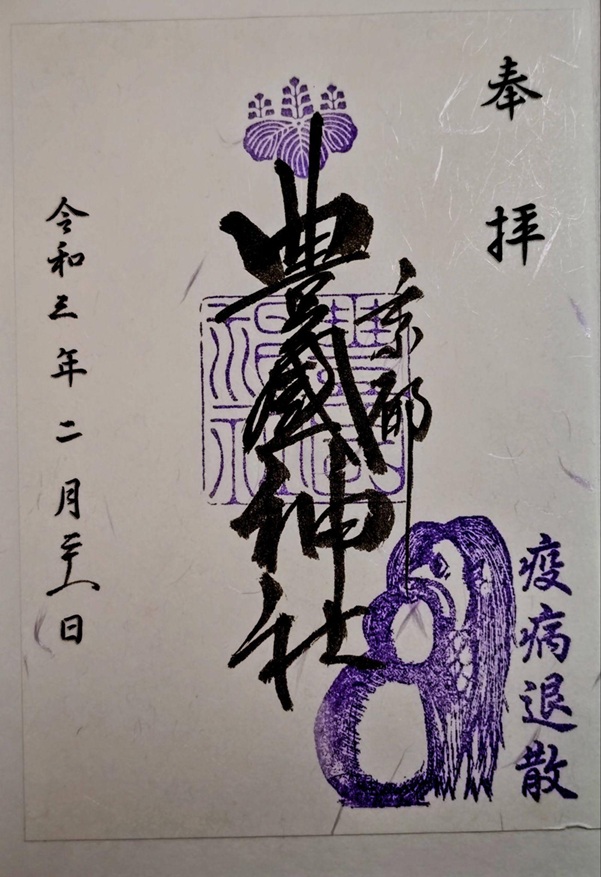 奉拝
疫病退散
京都
豊國神社
令和三年二月二十八日